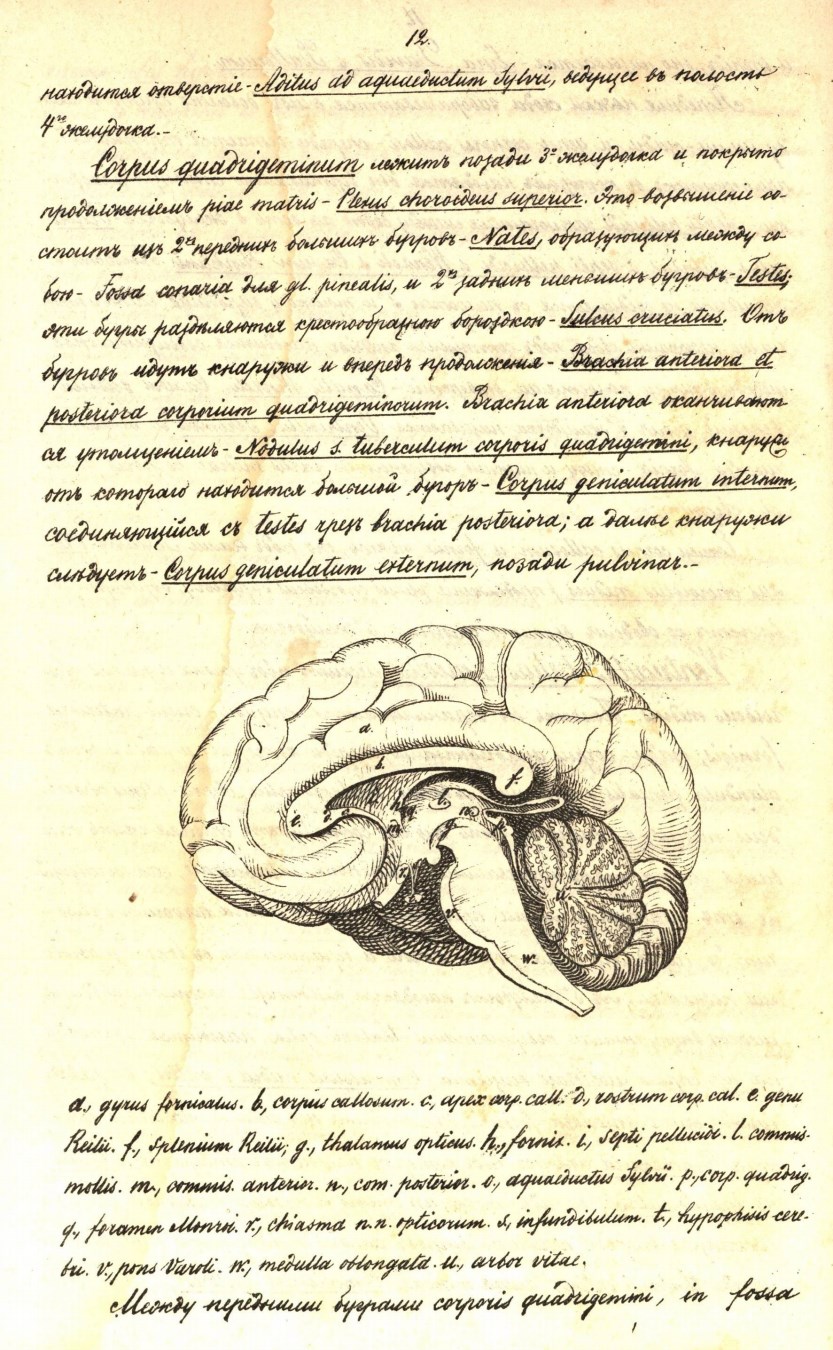 12.
находится отверстіе - Aditus ad aquaeductum Sylvii, ведущее въ полость
4го желудочка. -
Corpus quadrigeminum лежитъ позади 3го желудочка и покрыто
продолженіемъ piae matris - Plexus choroideus superior. Это возвышеніе со-
стоитъ изъ 2хъ переднихъ большихъ бугровъ - Nates, образующихъ между со-
бою - Fossa conaria для gl. pinealis, и 2хъ заднихъ меньшихъ бугровъ - Testes;
эти бугры раздѣляются крестообразною бороздкою - Sulcus cruciatus. Отъ
бугровъ идутъ кнаружи и впередъ продолженія - Brachia anteriora et
posteriora corporium quadrigeminorum. Brachia anteriora оканчивают
ся утолщеніемъ - Nodulus s. tuberculum corporis quadrigemini, кнаружи
отъ котораго находится большой бугоръ - Corpus geniculatum internum,
соединяющійся съ testes чрезъ brachia posteriora; а далѣе кнаружи
слѣдуетъ - Corpus geniculatum externum, позади pulvinar. -
a.
b.
f.
e.
v.
w.
a., gyrus fornicatus. b., corpus callosum. c., apex corp. call. d., rostrum corp. cal. e. genu
Reilii. f., splenium Reilii; g., thalamus opticus. h., fornix. i., septi pellucidi. l. commis-
mollis. m., commis. anterior. n., com. posterior. o., aquaeductus Sylvii. p., corp. quadrig.
q., foramen Monroi. r., chiasma n.n. opticorum. s., infundibulum. t., hypophisis cere-
bri. v., pons Varoli. w., medulla oblongata. u., arbor vitae.
Между передними буграми corporis quadrigemini, in fossa